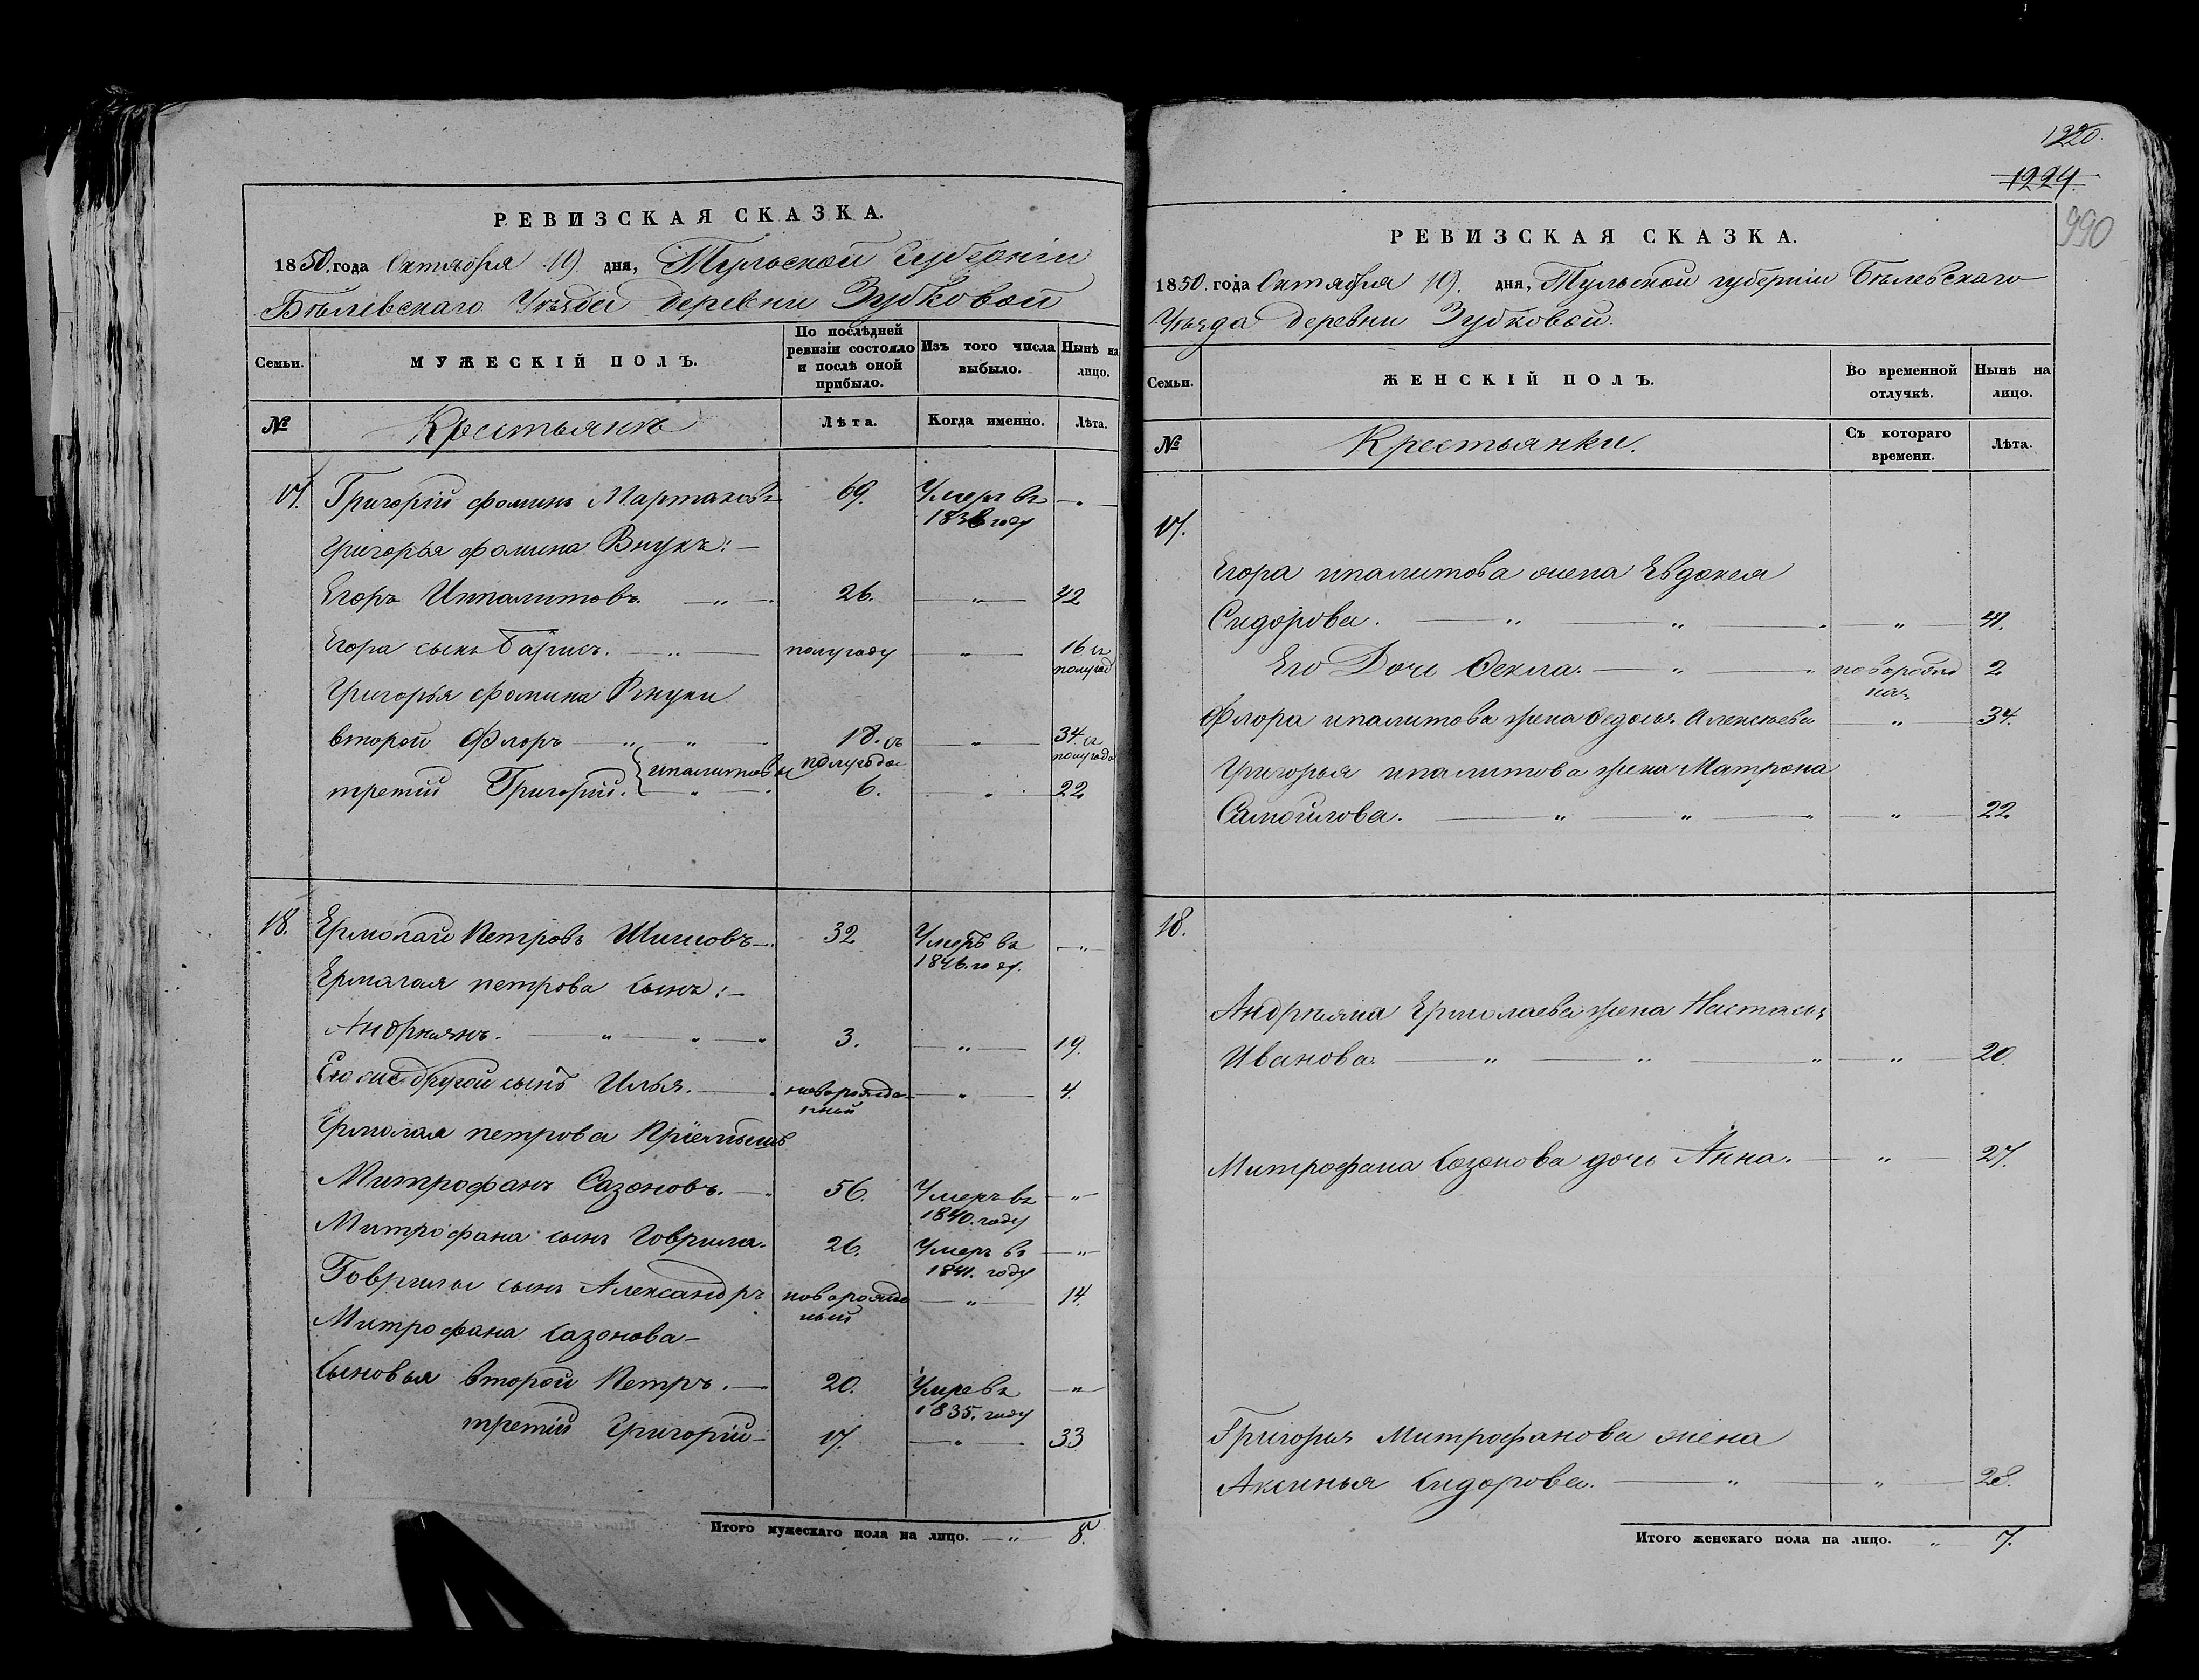 РЕВИЗСКАЯ СКАЗКА.
1850. года Октября 19 дня, Тульской Губернiи
Бѣлевскаго Уѣзда деревни Зубковой
Семьи.
МУЖЕСКIЙ ПОЛЪ.
По послѣдней ревизiи состояло и послѣ оной прибыло.
Изъ того числа выбыло.
Нынѣ на лицо.
№
Крестьянъ
Лѣта.
Когда именно.
Лѣта.
17. Григорiй фоминъ Мартаховъ 69. Умеръ въ
1838 году
Григорья фомина Внукъ:
Егоръ Ипалитовъ 26. 42
Егора сынъ Барисъ. полугоду 16 съ
полугод
Григорья фомина Внуки
второй Флоръ 18. съ 34 съ
ипалитовы полугодом полугодом
третiй Григорiй 6. 22
18. Ермолай Петровъ Шиловъ 32 Умеръ въ
1846. году.
Ермалая петрова сынъ:
Андреянъ. 3. 19.
Его же другой сынъ Илья. новорожде 4.
нный
Ермолая петрова Прiемышъ
Митрофанъ Сазоновъ. 56. Умеръ въ
1840. году
Митрофана сынъ Гаврила. 26. Умеръ въ
1841. году
Гаврилы сынъ Александръ новорожде 14.
ный
Митрофана Сазонова
Сыновья второй Петръ. 20. Умре въ
1835. году
третiй Григорiй 17. 33
Итого мужескаго пола на лицо. 8.
1220.
1224.
990
РЕВИЗСКАЯ СКАЗКА.
1850. года Октября 19. дня, Тульской губернiи Бѣлевскаго
Уѣзда деревни Зубковой.
Семьи.
ЖЕНСКIЙ ПОЛЪ.
Во временной отлучкѣ.
Нынѣ на лицо.
№
Крестьянки.
Съ котораго времени.
Лѣта.
17.
Егора ипалитова жена Евдокея
Сидорова. 41.
Его Дочь Фекла. новорожде 2
ная
Флора ипалитова жена Федосья Алексѣева 34.
Григорья ипалитова жена Матрона
Самойлова. 22
18.
Андреяна Ермолаева жена Настасья
Иванова. 20.
Митрофана Сазонова дочь Анна. 27.
Григорья Митрофанова жена
Аксинья Сидорова. 28.
Итого женскаго пола на лицо. 7.